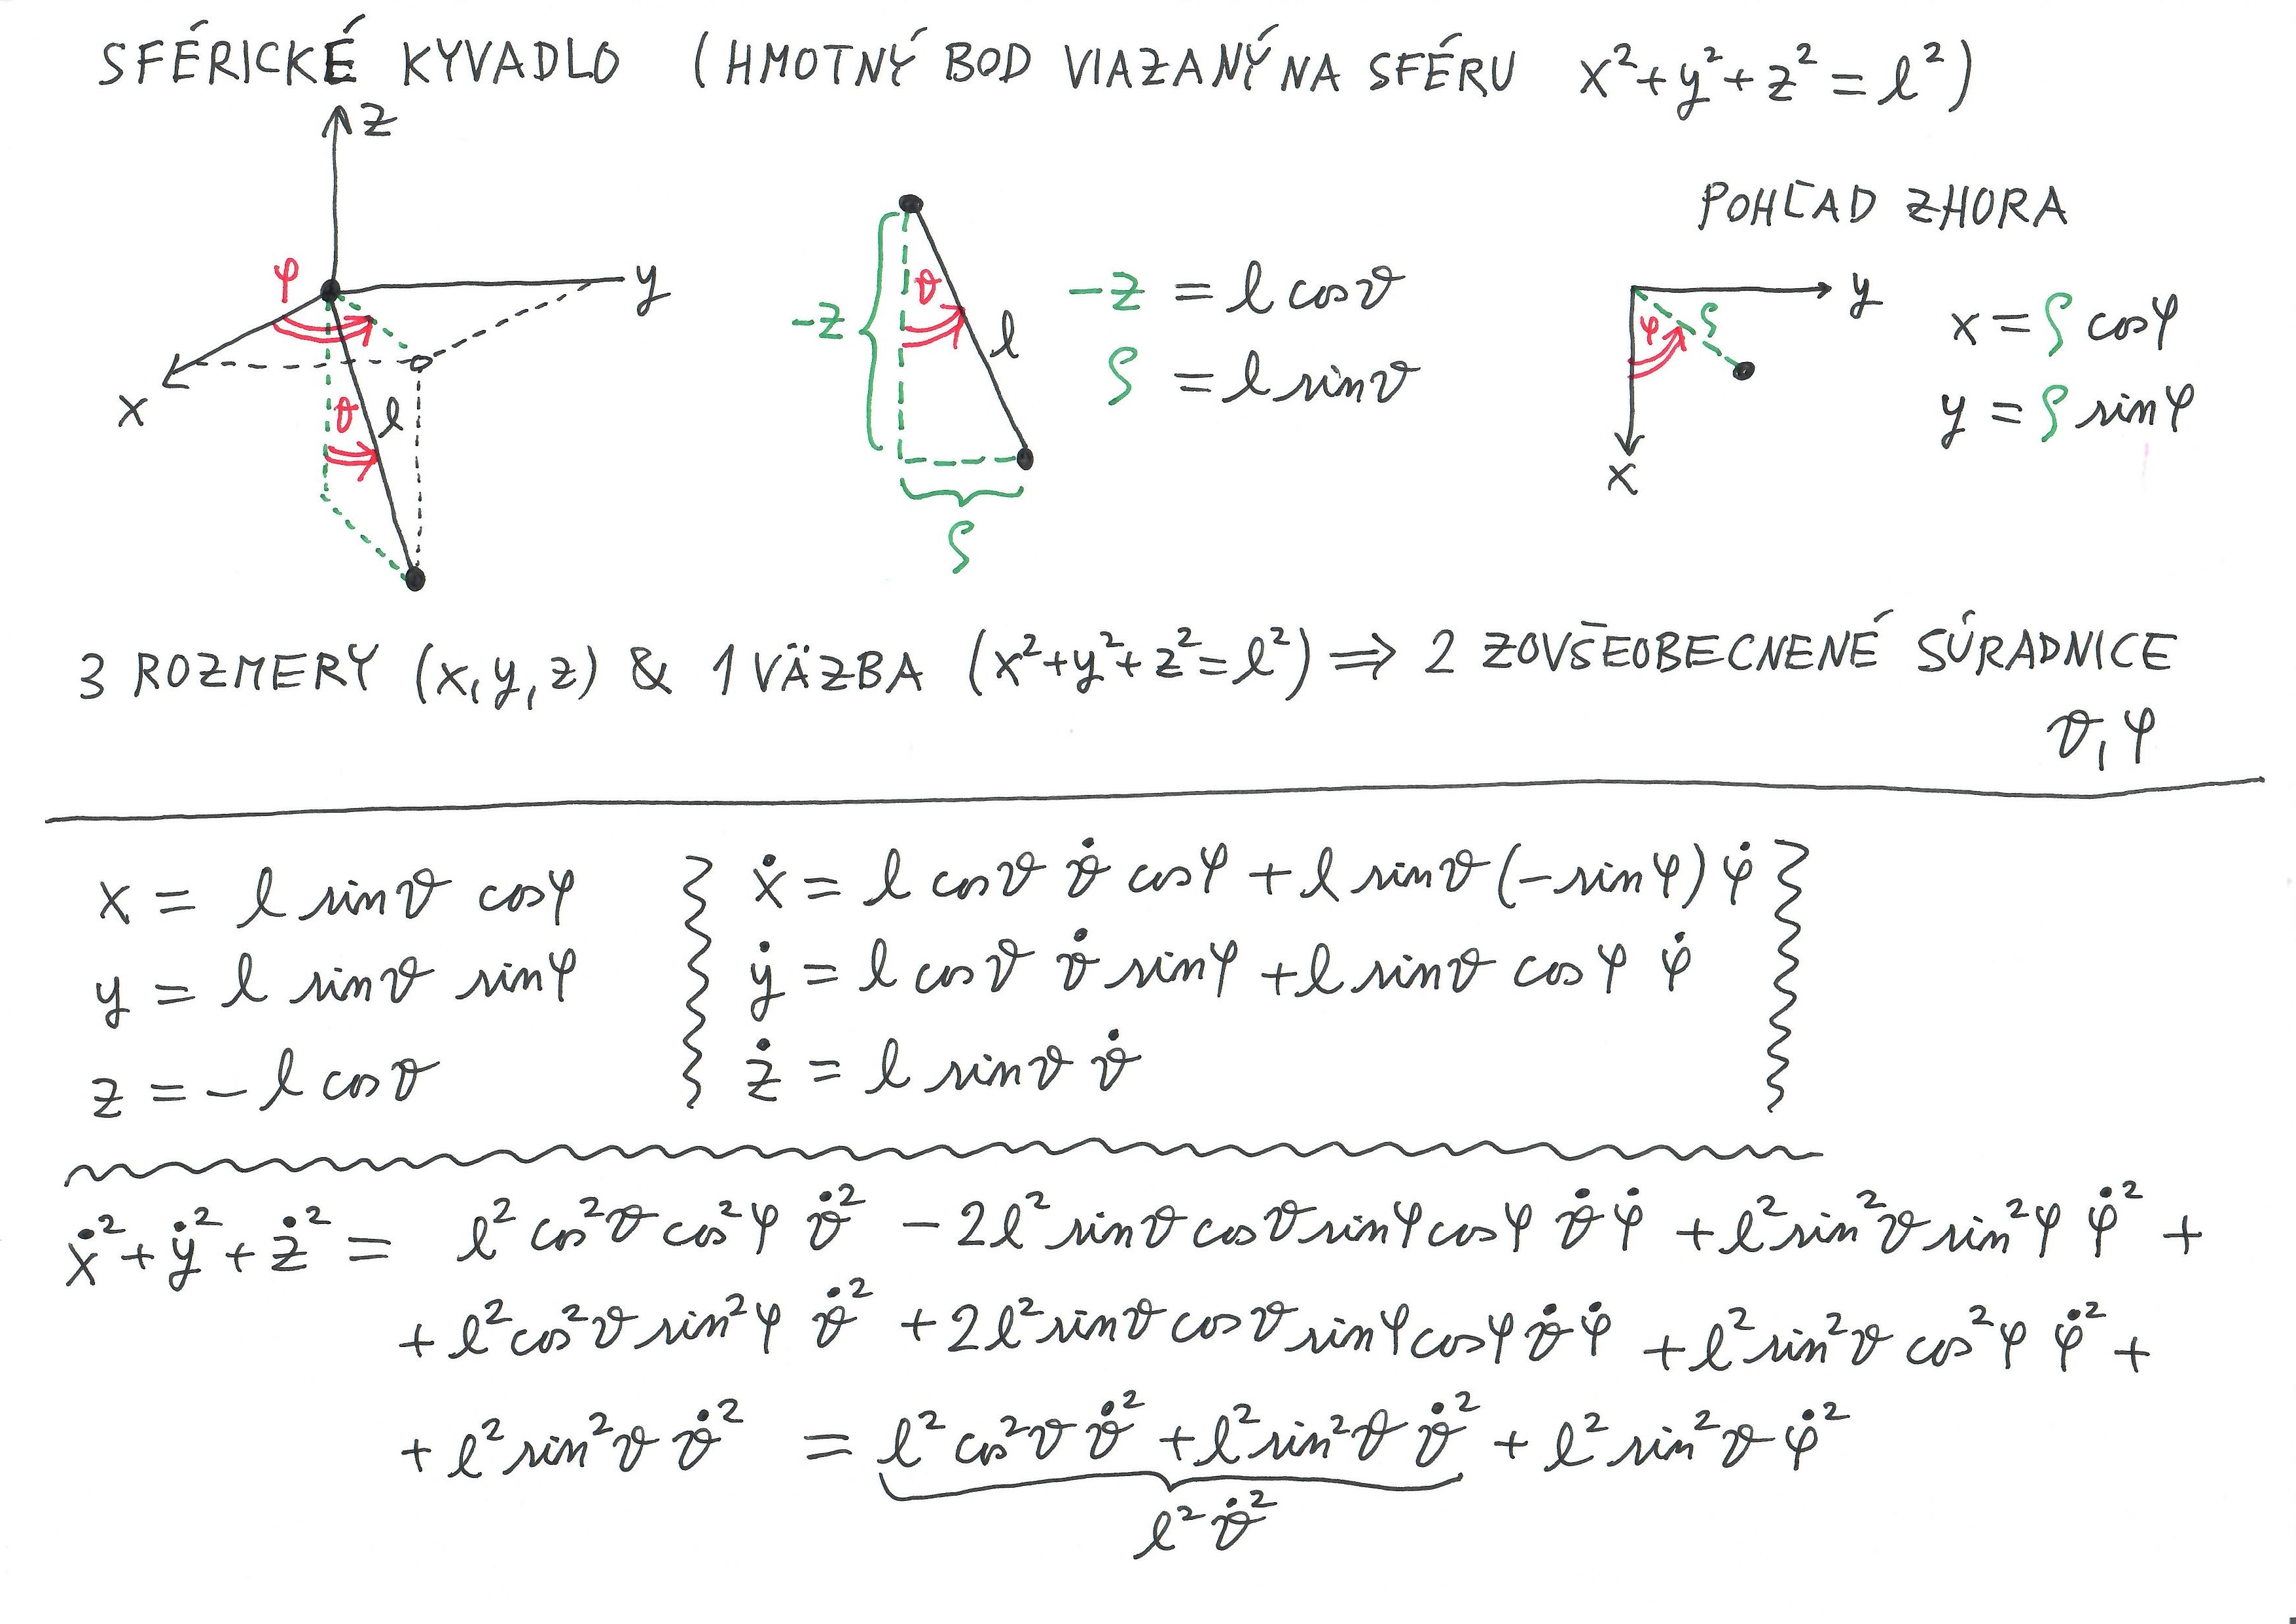 SFÉRICKÉ KYVADLO (HMOTNÝ BOD VIAZANÝ NA SFÉRU x²+y²+z²=l²)
z
φ
y
x
ϑ
l
-z
ϑ
l
ρ
-z = l cosϑ
ρ = l sinϑ
POHĽAD ZHORA
y
φ
ρ
x
x = ρ cosφ
y = ρ sinφ
3 ROZMERY (x,y,z) & 1 VÄZBA (x²+y²+z²=l²) ⇒ 2 ZOVŠEOBECNENÉ SÚRADNICE
ϑ,φ
x = l sinϑ cosφ
y = l sinϑ sinφ
z = -l cosϑ
ẋ = l cosϑ ϑ̇ cosφ + l sinϑ (-sinφ) φ̇
ẏ = l cosϑ ϑ̇ sinφ + l sinϑ cosφ φ̇
ż = l sinϑ ϑ̇
ẋ²+ẏ²+ż² = l² cos²ϑ cos²φ ϑ̇² - 2l² sinϑ cosϑ sinφ cosφ ϑ̇ φ̇ + l² sin²ϑ sin²φ φ̇² +
+ l² cos²ϑ sin²φ ϑ̇² + 2l² sinϑ cosϑ sinφ cosφ ϑ̇ φ̇ + l² sin²ϑ cos²φ φ̇² +
+ l² sin²ϑ ϑ̇² = l² cos²ϑ ϑ̇² + l² sin²ϑ ϑ̇² + l² sin²ϑ φ̇²
l² ϑ̇²